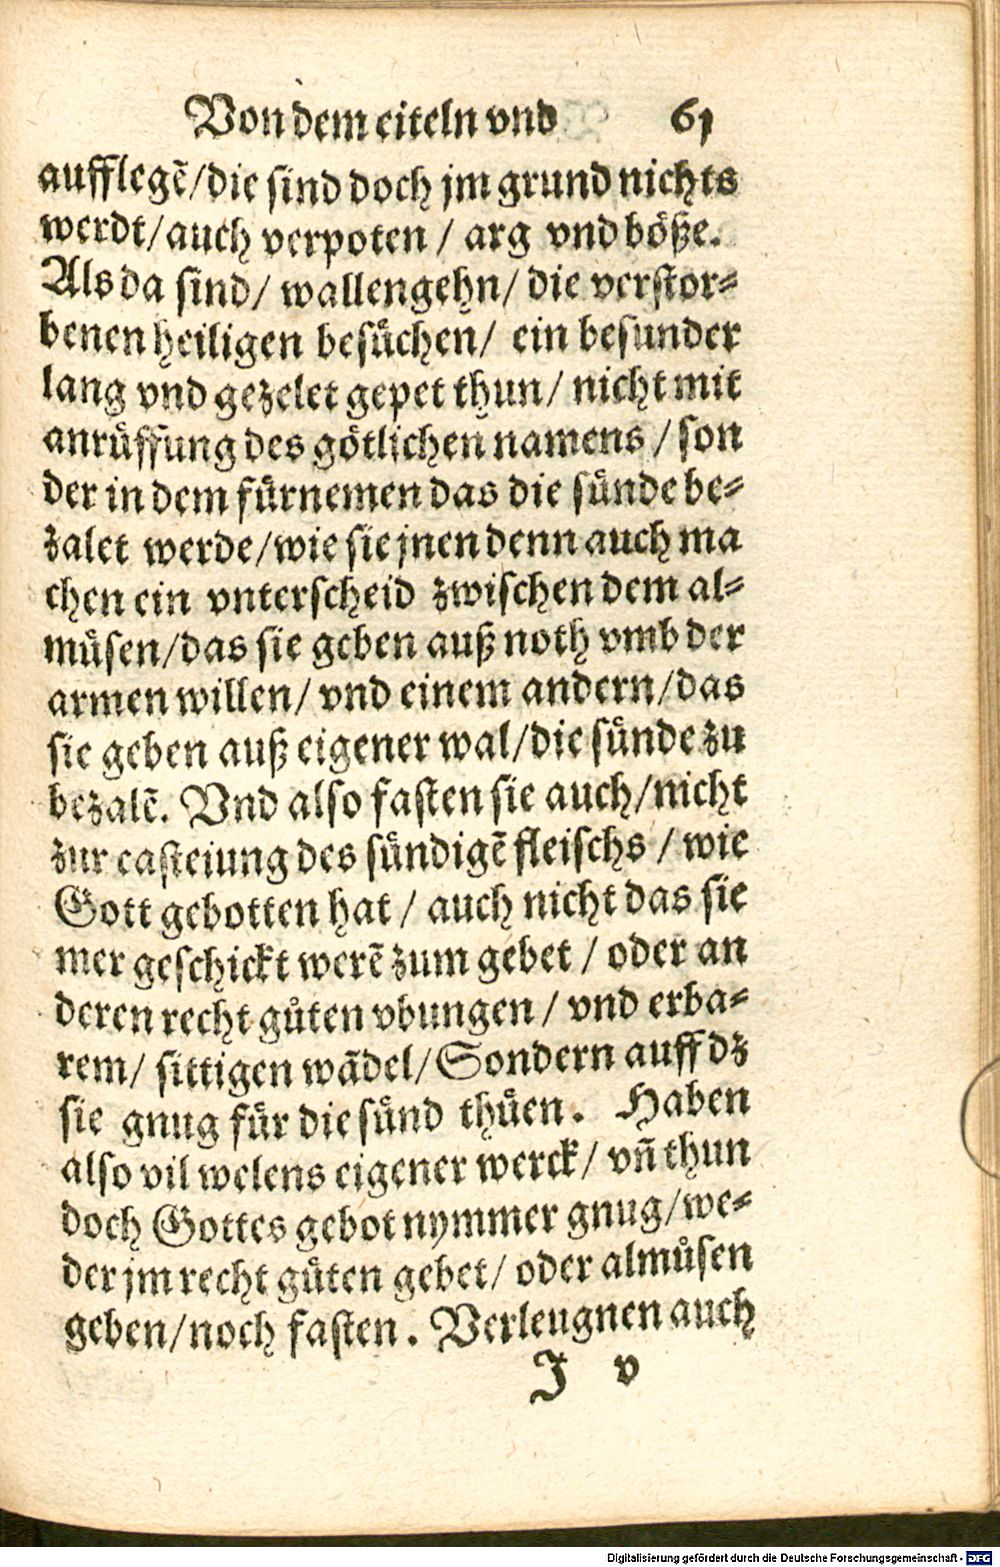 Von dem eiteln vnd 61
aufflegẽ/die sind doch jm grund nichts
werdt/auch verpoten / arg vnd böße.
Als da sind/ wallengehn/ die verstor⸗
benen heiligen besůchen/ ein besunder
lang vnd gezelet gepet thun/ nicht mit
anrůffung des götlichen namens / son
der in dem fürnemen das die sünde be⸗
zalet werde/wie sie jnen denn auch ma
chen ein vnterscheid zwischen dem al⸗
můsen/das sie geben auß noth vmb der
armen willen/ vnd einem andern/das
sie geben auß eigener wal/die sünde zu
bezalẽ. Vnd also fasten sie auch/nicht
zur casteiung des sündigẽ fleischs / wie
Gott gebotten hat / auch nicht das sie
mer geschickt werẽ zum gebet / oder an
deren recht gůten vbungen / vnd erba⸗
rem/ sittigen wãdel/Sondern auff dz
sie gnug für die sünd thůen. Haben
also vil welens eigener werck/ vñ thun
doch Gottes gebot nymmer gnug/we⸗
der jm recht gůten gebet/ oder almůsen
geben/noch fasten. Verleugnen auch
J v
Digitalisierung gefördert durch die Deutsche Forschungsgemeinschaft - DFG